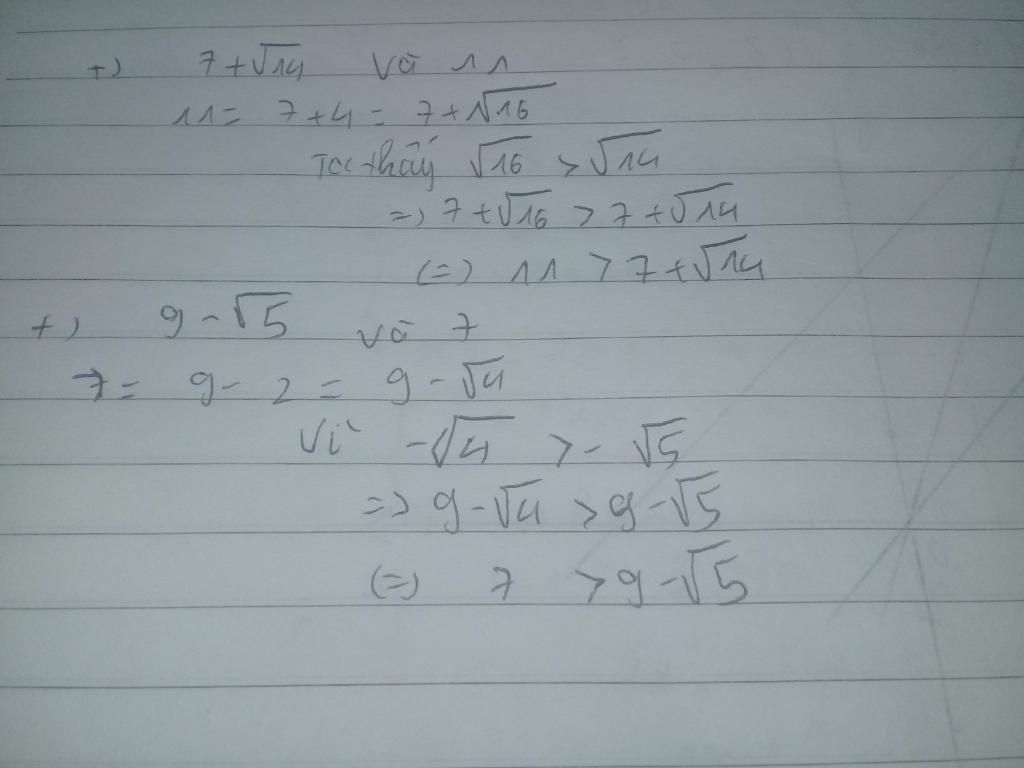 +) 7+√14 và 11
11= 7+4= 7+√16
Ta thấy √16 > √14
=> 7+√16 > 7+√14
(=) 11 > 7+√14
+) 9-√5 và 7
7= 9- 2= 9-√4
Vì -√4 >- √5
=> 9-√4 >9-√5
(=) 7 >9-√5